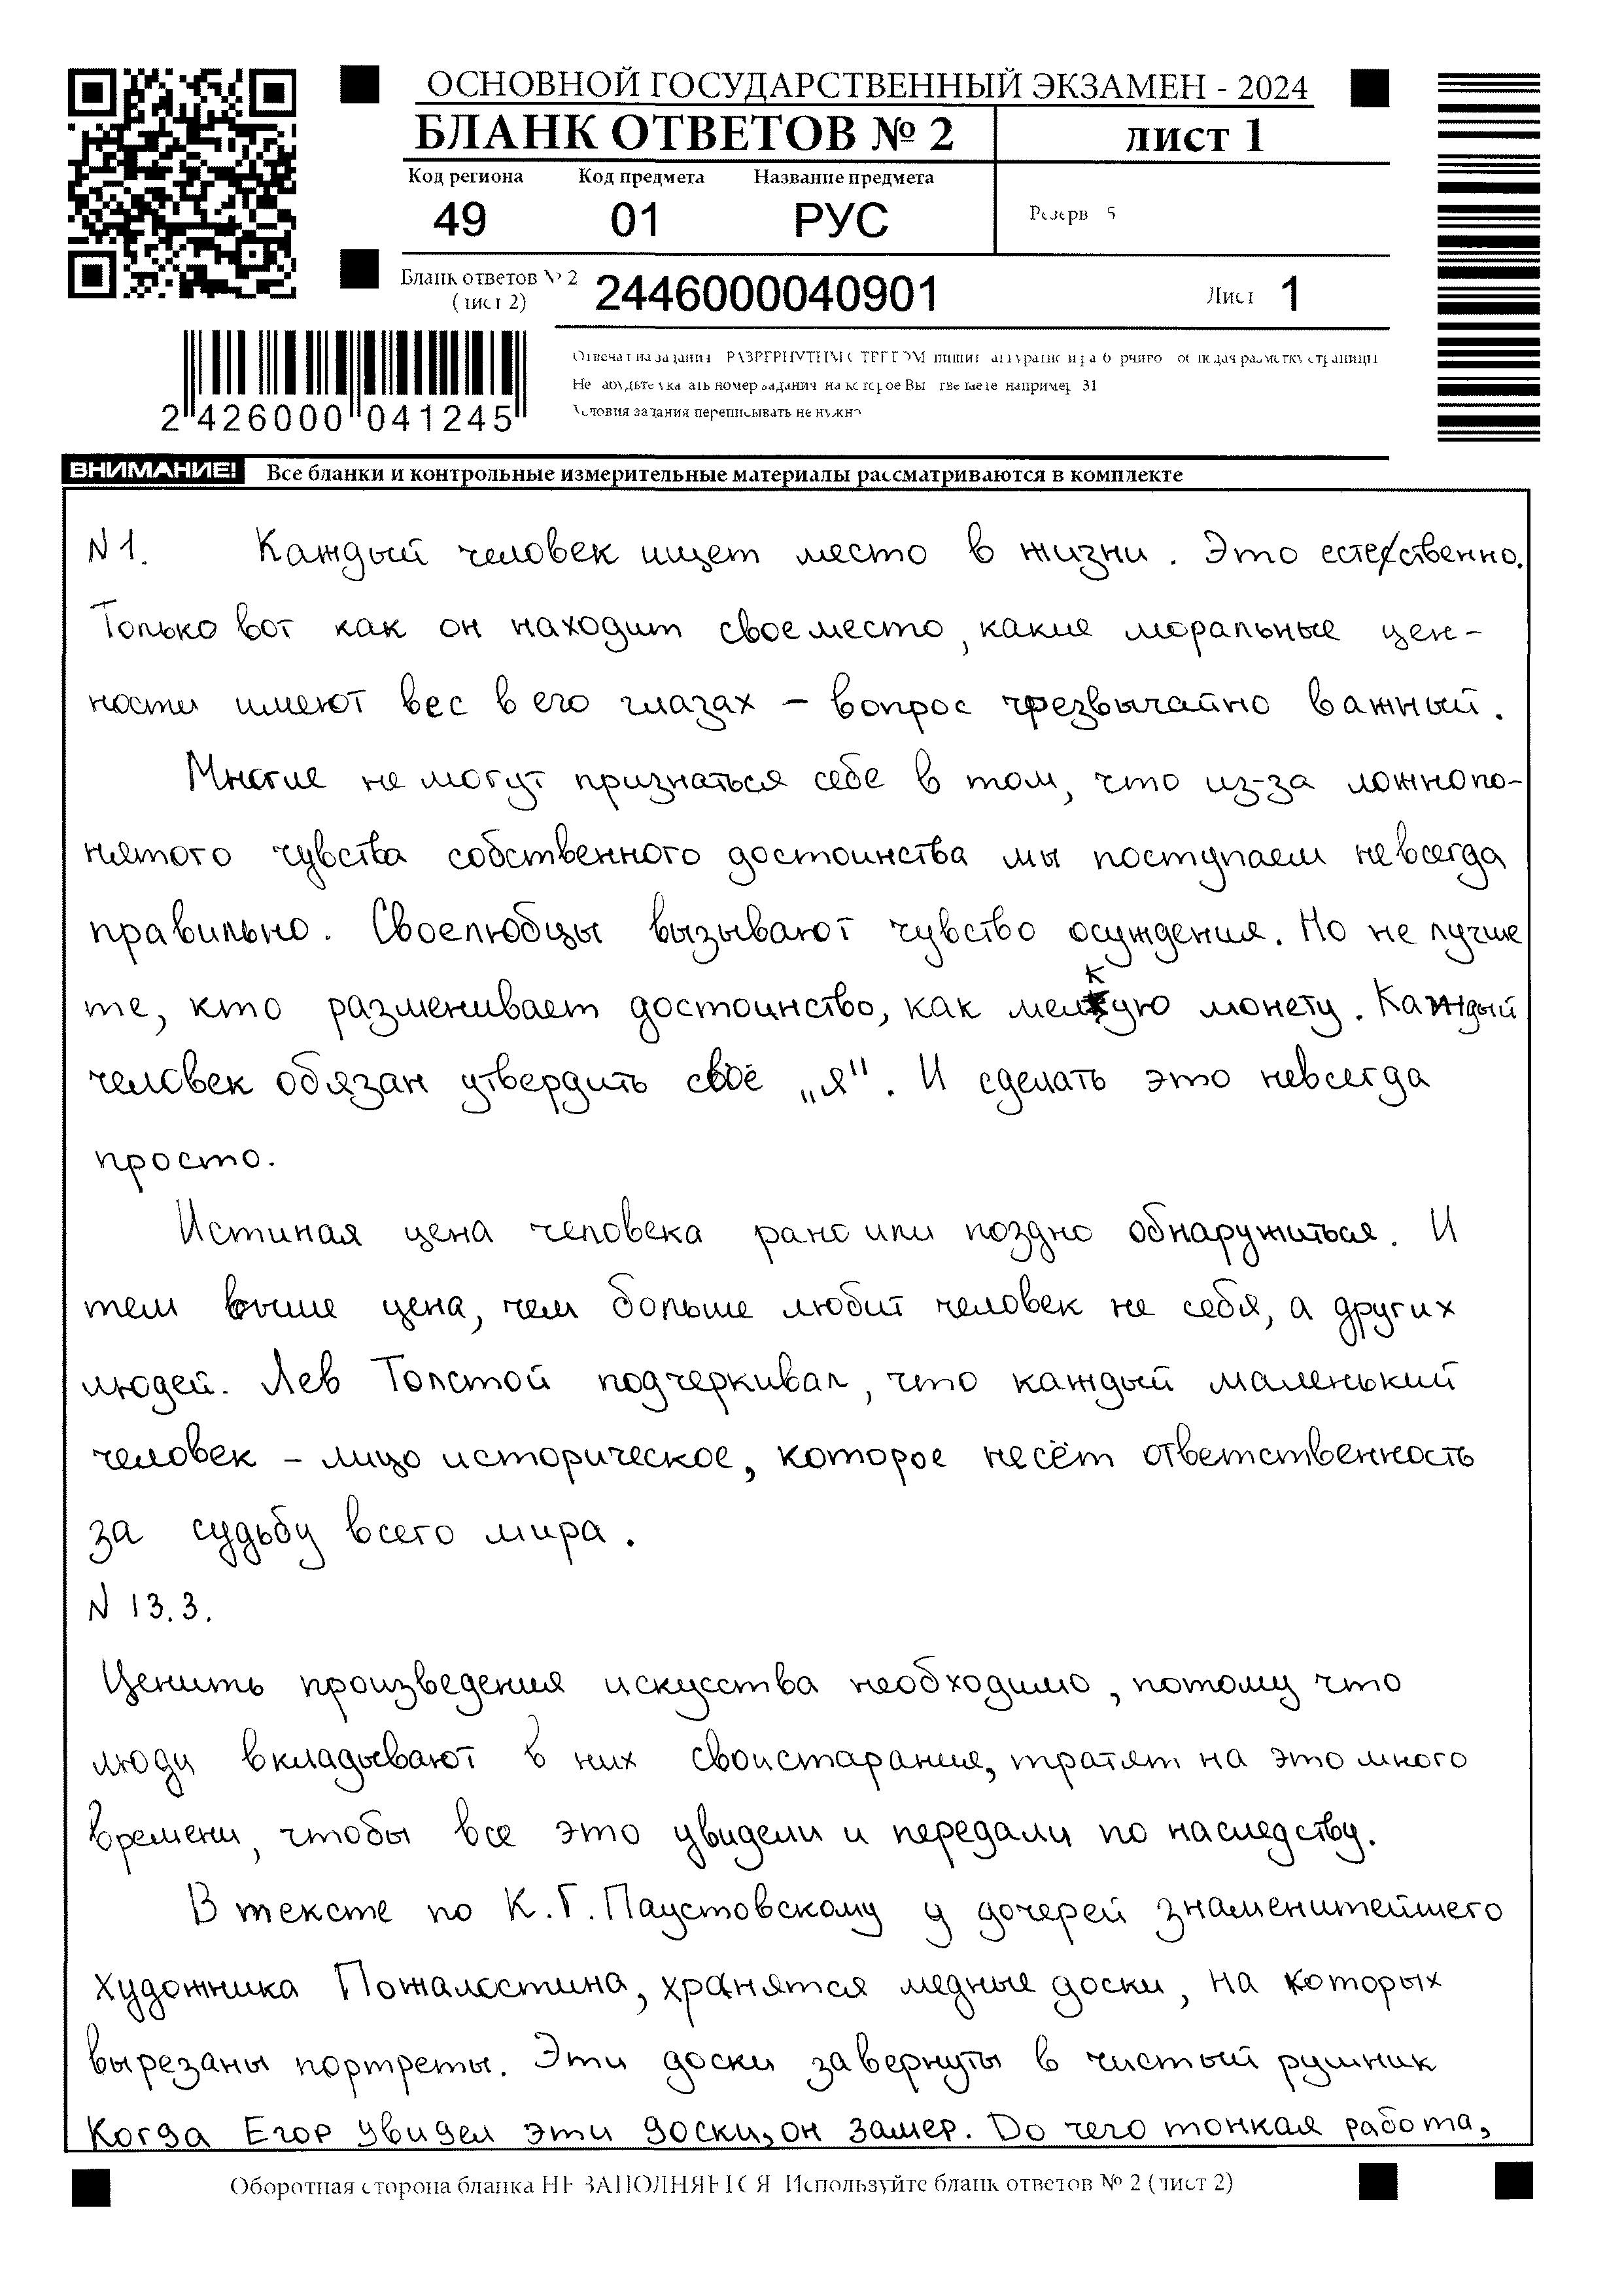 ОСНОВНОЙ ГОСУДАРСТВЕННЫЙ ЭКЗАМЕН - 2024
БЛАНК ОТВЕТОВ № 2
ЛИСТ 1
Код региона Код предмета Название предмета
49 01 РУС
Резерв 5
Бланк ответов № 2
(лист 2)
2446000040901
Лист 1
2 426000 041245
Условия задания переписывать не нужно
ВНИМАНИЕ! Все бланки и контрольные измерительные материалы рассматриваются в комплекте
N 1. Каждый человек ищет место в жизни. Это естественно.
Только вот как он находит своеместо, какие моральные цен-
ности имеют вес в его глазах – вопрос чрезвычайно важный.
Многие не могут признаться себе в том, что из-за ложнопо-
нятого чувства собственного достоинства мы поступаем невсегда
правильно. Своелюбцы вызывают чувство осуждения. Но не лучше
те, кто разменивает достоинство, как мелкую монету. Каждый
человек обязан утвердить своё „я". И сделать это невсегда
просто.
Истиная цена человека рано или поздно обнаружиться. И
тем выше цена, чем больше любит человек не себя, а других
людей. Лев Толстой подчеркивал, что каждый маленький
человек – лицо историческое, которое несёт ответственность
за судьбу всего мира.
N 13.3.
Ценить произведения искусства необходимо, потому что
люди вкладывают в них своистарания, тратят на это много
времени, чтобы все это увидели и передали по наследству.
В тексте по К.Г. Паустовскому у дочерей знаменитейшего
художника Пожалостина, хранятся медные доски, на которых
вырезаны портреты. Эти доски завернуты в чистый рушник
Когда Егор увидел эти доски, он замер. До чего тонкая работа,
Оборотная сторона бланка НЕ ЗАПОЛНЯЕТСЯ Используйте бланк ответов № 2 (лист 2)